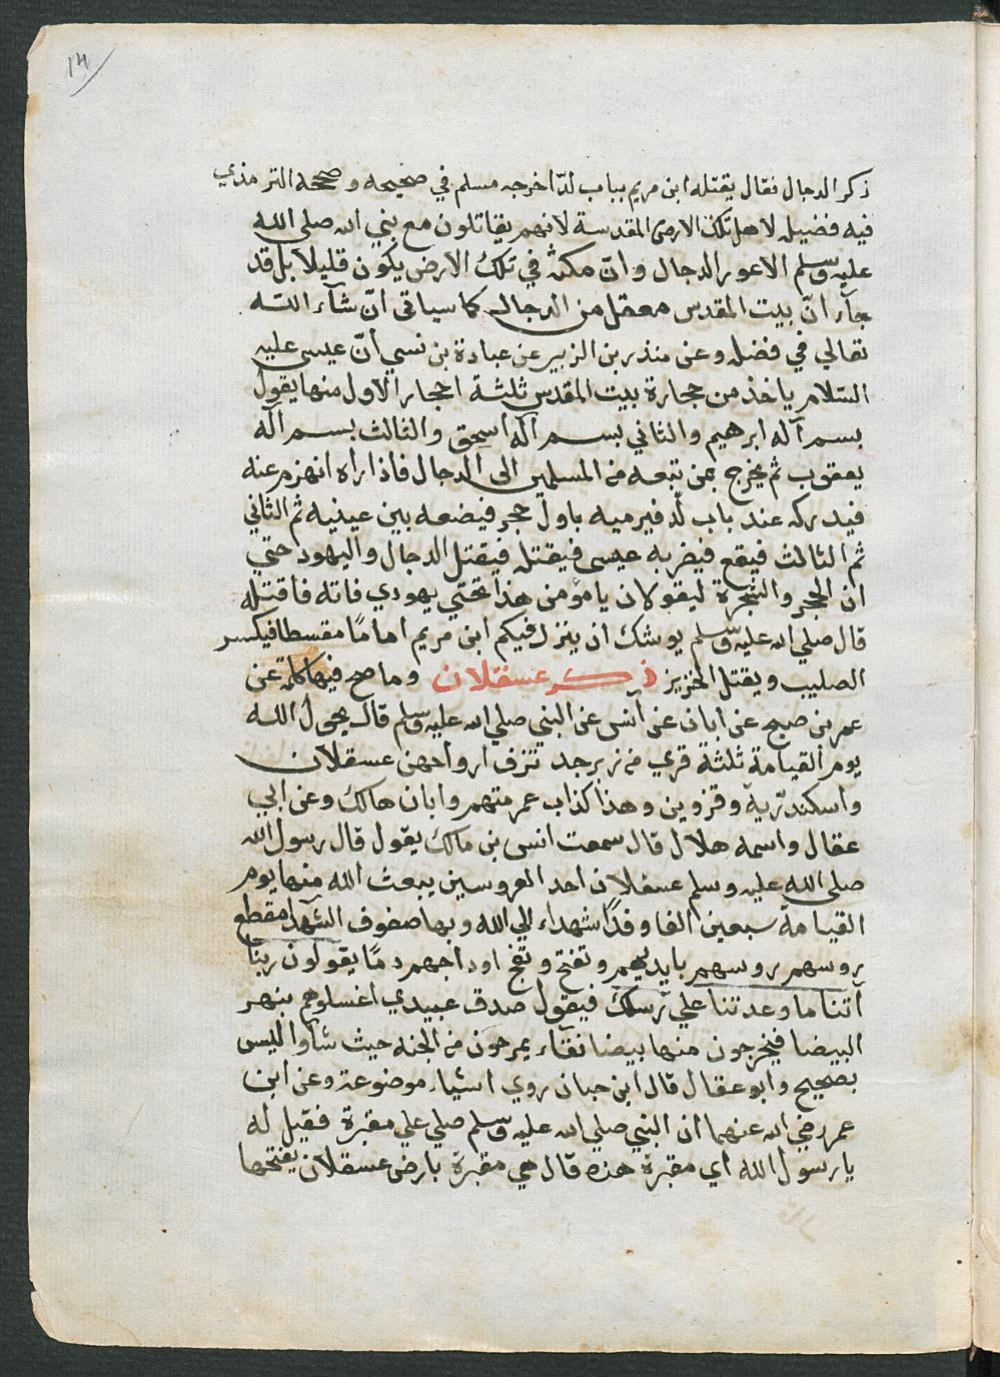 ١٣
ذكر الدجال فقال يقتله ابن مريم بباب لدّ اخرجه مسلم في صحيحه وصححه الترمذي
فيه فضيلة لاهل تلك الارض المقدسة لانهم يقاتلون مع نبي الله صلى الله
عليه وسلم الاعور الدجال وانّ مكثه في تلك الارض يكون قليلا بل قد
جآء انّ بيت المقدس معقل من الدجال كما سياتى ان شآء الله
تعالي في فضله وعن منذر بن الزبير عن عبادة بن نسي أنّ عيسى عليه
السّلام ياخذ من حجارة بيت المقدس ثلثة احجار الاول منها يقول
بسم آله ابرهيم والثاني بسم آله اسحق والثالث بسم آله
يعقوب ثم يخرج بمن تبعه من المسلمين الى الدجال فاذا راه انهزم عنه
فيدركه عند باب لّد فيرميه باول حجر فيضعه بين عينيه ثم الثاني
ثم الثالث فيقع فيضربه عيسى فيقتله فيقتل الدجال واليهود حتي
ان الحجر والشجرة ليقولان يا مؤمن هذا تحتي يهودي فاته فاقتله
قال صلي الله عليه وسلم يوشك ان ينزل فيكم ابن مريم اماماً مقسطا فيكسر
الصليب ويقتل الخنزير ذكر عسقلان وما صح فيها كلمة عن
عمر بن صبح عن ابان عن أنس عن النبي صلي الله عليه وسلم قال يحول الله
يوم القيامة ثلثة قري من زبرجد تزف ارواحهن عسقلان
واسكندرية وقزوين وهذا كذاب عمر متهم وابان هالك وعن ابي
عقال واسمه هلال قال سمعت انس بن مالك يقول قال رسول الله
صلى الله عليه وسلم عسقلان احد العروسين يبعث الله منها يوم
القيامة سبعين الفا وفدًا شهداء الي الله وبها صفوف الشهدا مقطع
روسهم روسهم بايديهم وتفتح وتفج اوداجهم دمًا يقولون ربنا
آتنا ما وعدتنا علي رسلك فيقول صدق عبيدي اغسلوهم بنهر
البيضا فيخرجون منها بيضا نقآء يمرحون في الجنه حيث شآوا ليس
بصحيح وابو عقال قال ابن حبان روي اشياء موضوعة وعن ابن
عمر رضي الله عنهما ان النبي صلي الله عليه وسلم صلي علي مقبرة فقيل له
يا رسول الله اي مقبرة هذه قال هي مقبرة بارض عسقلان يفتحها